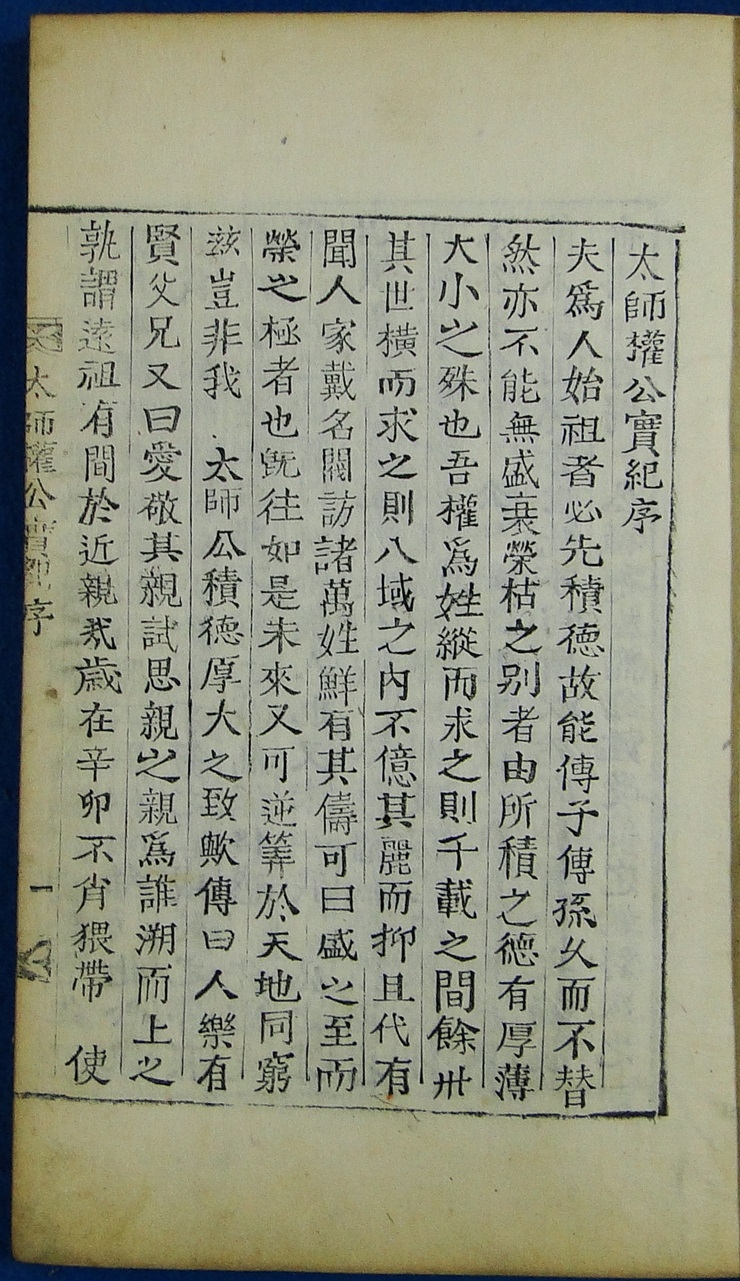 太師權公實紀序
夫爲人始祖者必先積德故能傳子傳孫久而不替
然亦不能無盛衰榮枯之别者由所積之德有厚薄
大小之殊也吾權爲姓縱而求之則千載之間餘卅
其世橫而求之則八域之內不億其麗而抑且代有
聞人家戴名閥訪諸萬姓鮮有其儔可曰盛之至而
榮之極者也旣往如是未來又可逆筭於天地同窮
玆豈非我 太師公積德厚大之致歟傳曰人樂有
賢父兄又曰愛敬其親試思親之親爲誰溯而上之
孰謂遠祖有間於近親哉歲在辛卯不肖猥帶 使
太師權公實紀序 一